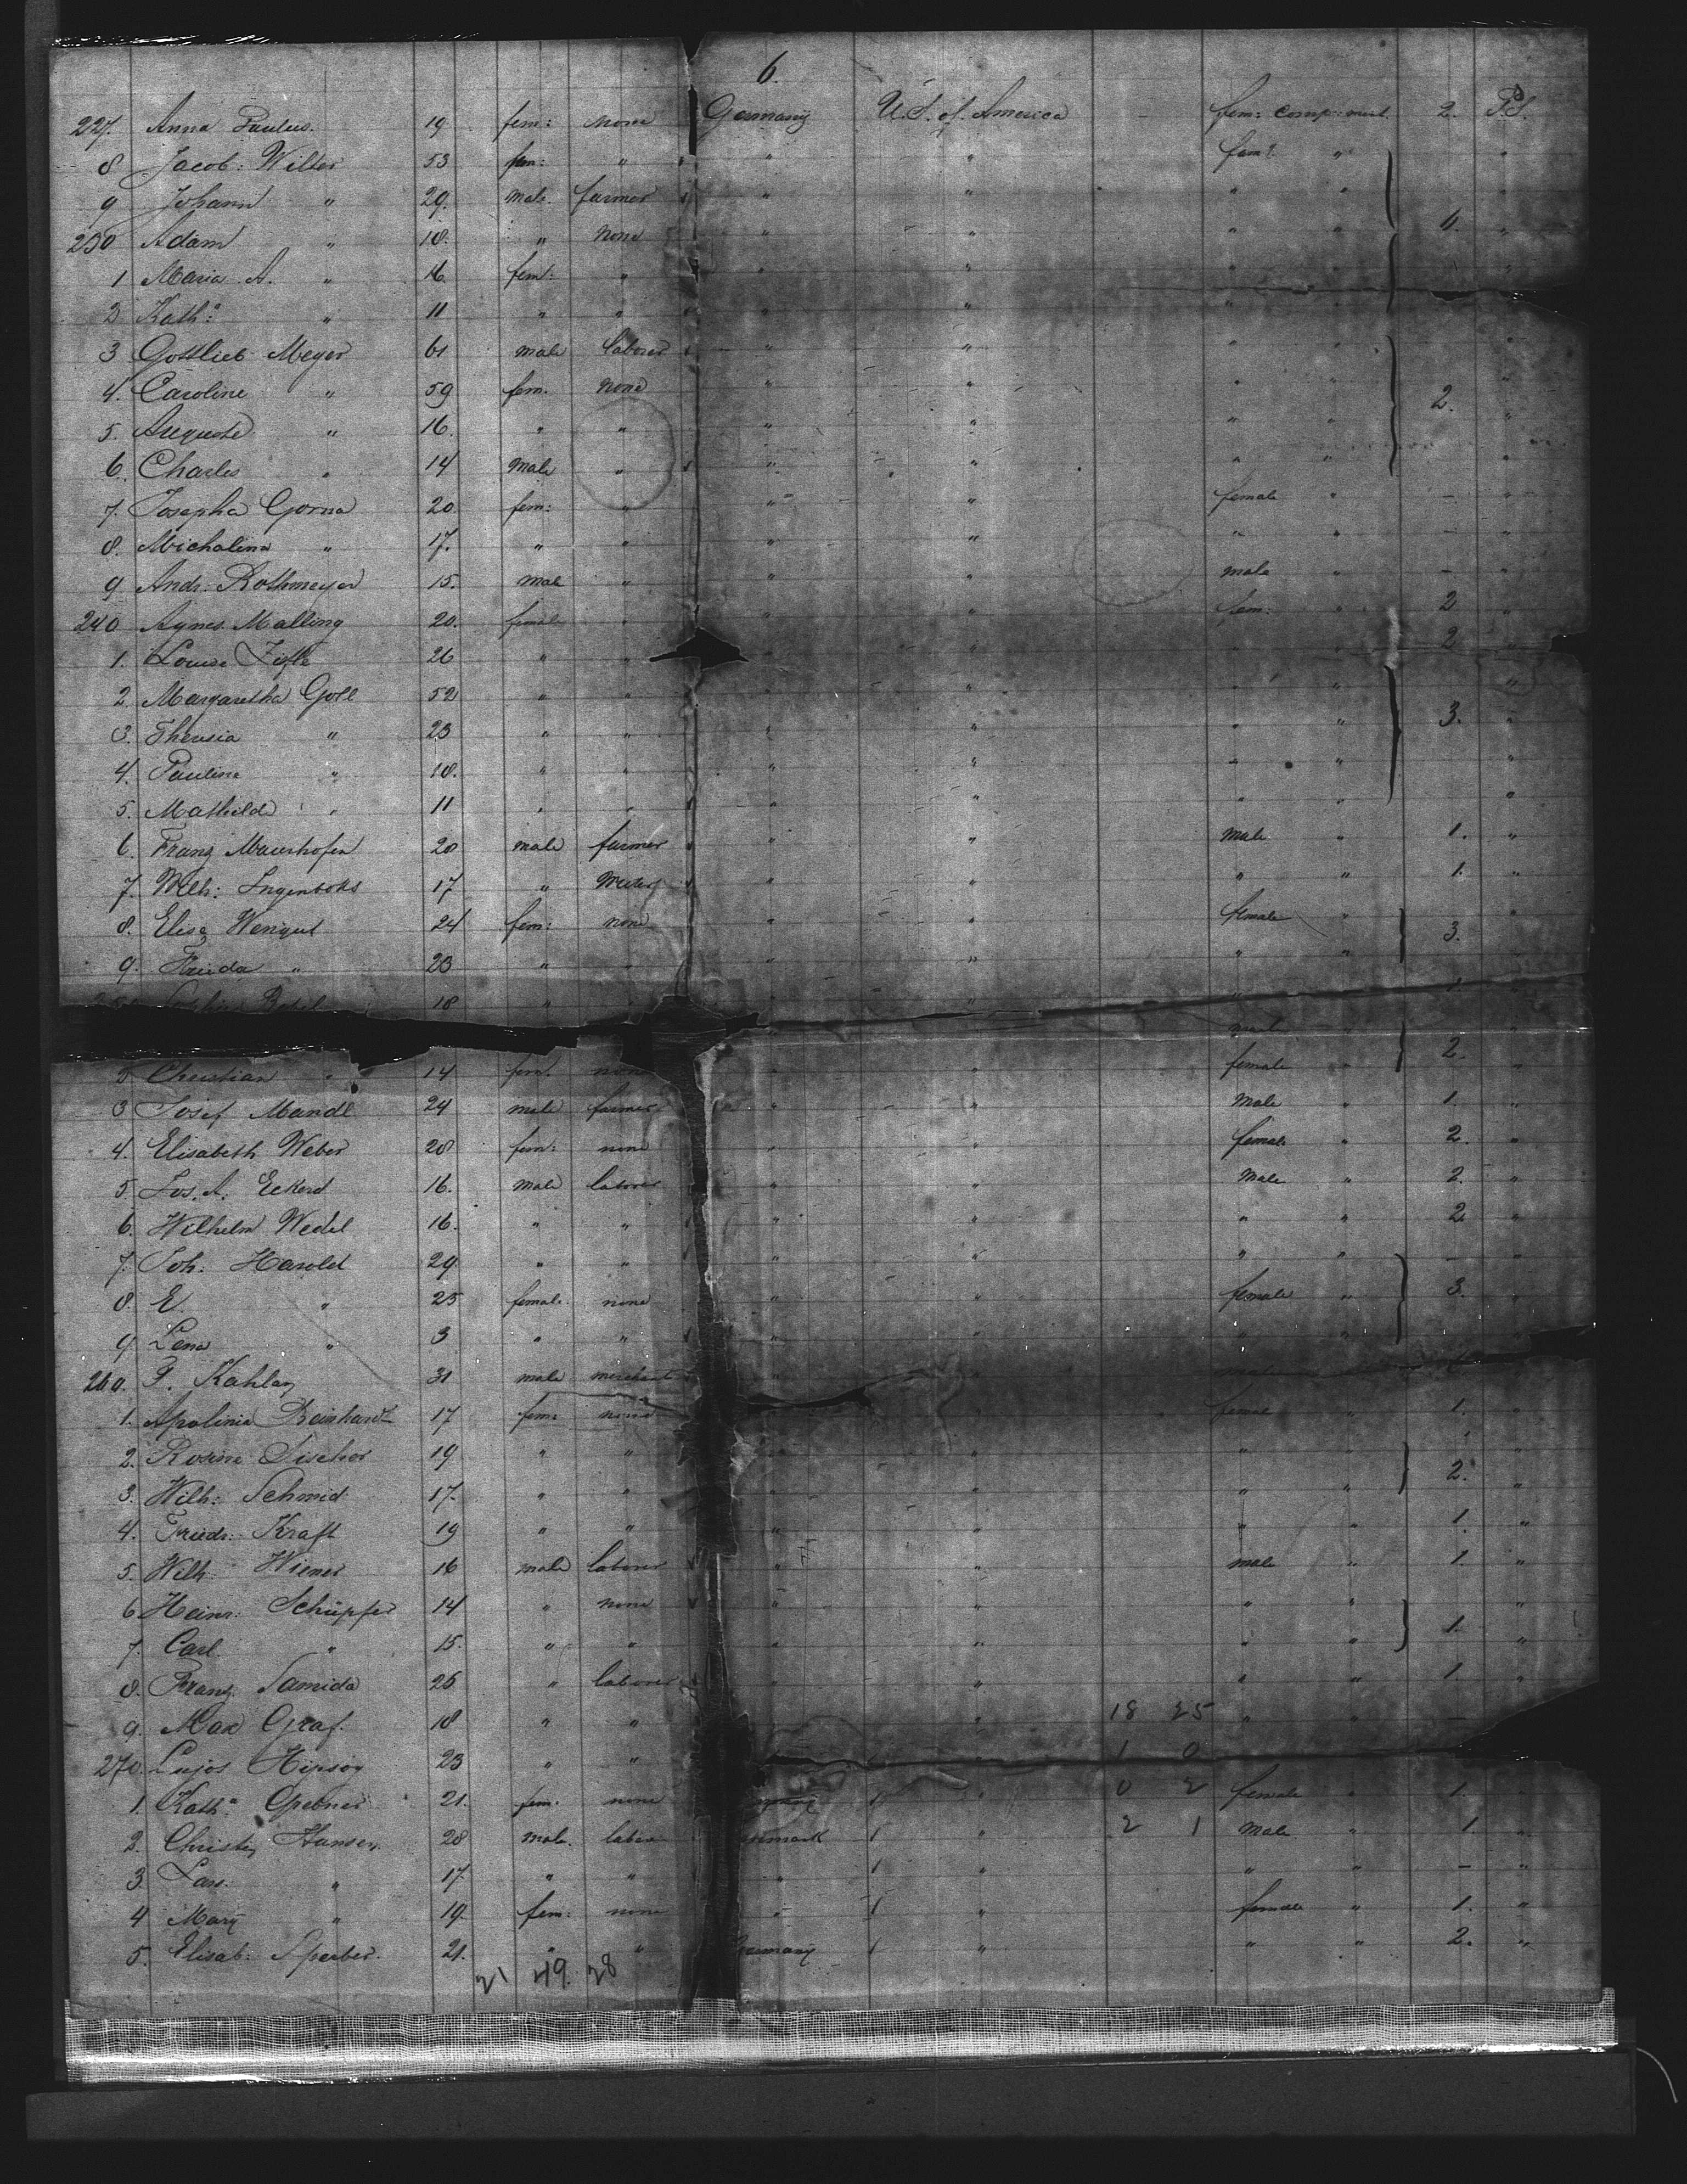 6.
227. Anna Paulus. 19 fem: none Germany U.S. of America fem: comp: ment. 2. P.S.
8 Jacob: Wilter 53 fem: " " " fam: " "
9 Johann " 29. male. farmer " " " "
230 Adam " 18. " none " " " " 4. "
1 Maria A. " 16. fem: " " " " " "
2 Kath: " 11 " " " " " "
3 Gottlieb Meyer 61 male laborer " " " " "
4. Caroline " 59 fem. none " " " " 2. "
5. Auguste " 16. " " " " " " "
6. Charles " 14 male " " " " " "
7. Josepha Gorna 20. fem: " " " female " – "
8. Michalina " 17. " " " " " " – "
9 Andr: Rothmeyer 15. male " " " male " – "
240 Agnes Malling 20. female " " " fem: " 2 "
1. Louise 26 " " " " " " 2 "
2. Margaretha Goll 52 " " " " " " "
3. Theresia " 23 " " " " " " 3. "
4. Pauline " 18. " " " " " " "
5. Mathilde " 11 " " " " " " "
6. Franz Mauerhofer 20 male farmer " " male " 1. "
7. Wilh: 17 " " " " " 1. "
8. Elise Wengut 24 fem: none " " female " 3. "
9. Frieda " 23 " " " " " "
18 " " " 1. "
male 2. "
Christian " 14 fem. none " " female " "
3 Josef Mandl 24 male farmer " " Male " 1. "
4. Elisabeth Weber 20 fem: none " " female " 2. "
5. Jos. A. Eckerd 16. male laborer " " Male " 2. "
6. Wilhelm Wedel 16. " " " " " " 2 "
7. Joh: Harold 29. " " " " " " – "
8. E. " 25 female. none " " female " 3. "
9. Lena " 3 " " " " " " "
260. P. Kahlan 31 male merchant " "
1. Apolinia Reinhardt 17 fem: none " " female " 1. "
2. Rosine Discher 19 " " " " " " 2. "
3. Wilh: Schmid 17. " " " " " " "
4. Friedr: Kraft 19 " " " " " " 1. "
5. Wilh: Wiemer 16 male laborer " " male " 1. "
6 Heinr: Schüpfer 14 " none " " " " "
7. Carl " 15. " " " " " " 1. "
8. Franz Samida 26 " laborer " " " " 1. "
9. Max Graf. 18 " " " 18 25 " " –
270. Lujos Hipsoy 23 " " " 1 0
1. Kath: Gpebner 21. fem. none 1 " 0 2 female " 1. "
2. Christn Hansen 28 male. labor nmark 1 " 2 1 Male " 1. "
3. Lars. " 17. " " " 1 " " " – "
4 Mary " 19. fem: none " 1 " female " 1. "
5. Elisab: Sperber. 21. " " Germany 1 " " " 2. "
21 49. 28